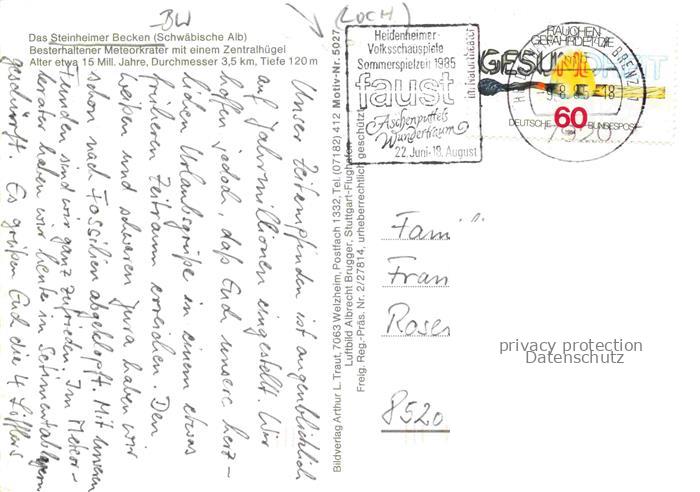 BW
(LOCH)
Das Steinheimer Becken (Schwäbische Alb)
Besterhaltener Meteorkrater mit einem Zentralhügel
Alter etwa 15 Mill. Jahre, Durchmesser 3,5 km, Tiefe 120 m
Unser Zeitempfinden ist augenblicklich
auf Jahrmillionen eingestellt. Wir
hoffen jedoch, daß Euch unsere herz-
lichen Urlaubsgrüße in einem etwas
früheren Zeitraum erreichen. Den
weißen und schwarzen Jura haben wir
schon nach Fossilien abgeklopft. Mit unseren
Funden sind wir ganz zufrieden. Im Meteor-
krater haben wir heute in Sedimentablagern
geschürft. Es grüßen Euch die 4 Löfflers
Bildverlag Arthur L. Traut, 7063 Welzheim, Postfach 1332, Tel. (07182) 412 Motiv-Nr. 5027
Luftbild Albrecht Brugger, Stuttgart-Flughafen
Freig. Reg.-Präs. Nr. 2/27814, urheberrechtlich geschützt
Heidenheimer-
Volksschauspiele
Sommerspielzeit 1985
faust
im Naturtheater
Aschenputtels
Wundertraum
22. Juni-18. August
RAUCHEN
GEFÄHRDET DIE
GESUNDHEIT
BRENZ
9.8.85-18
60
DEUTSCHE BUNDESPOST
1984
7920
Fam
Fran
Rosen
8520
privacy protection
Datenschutz